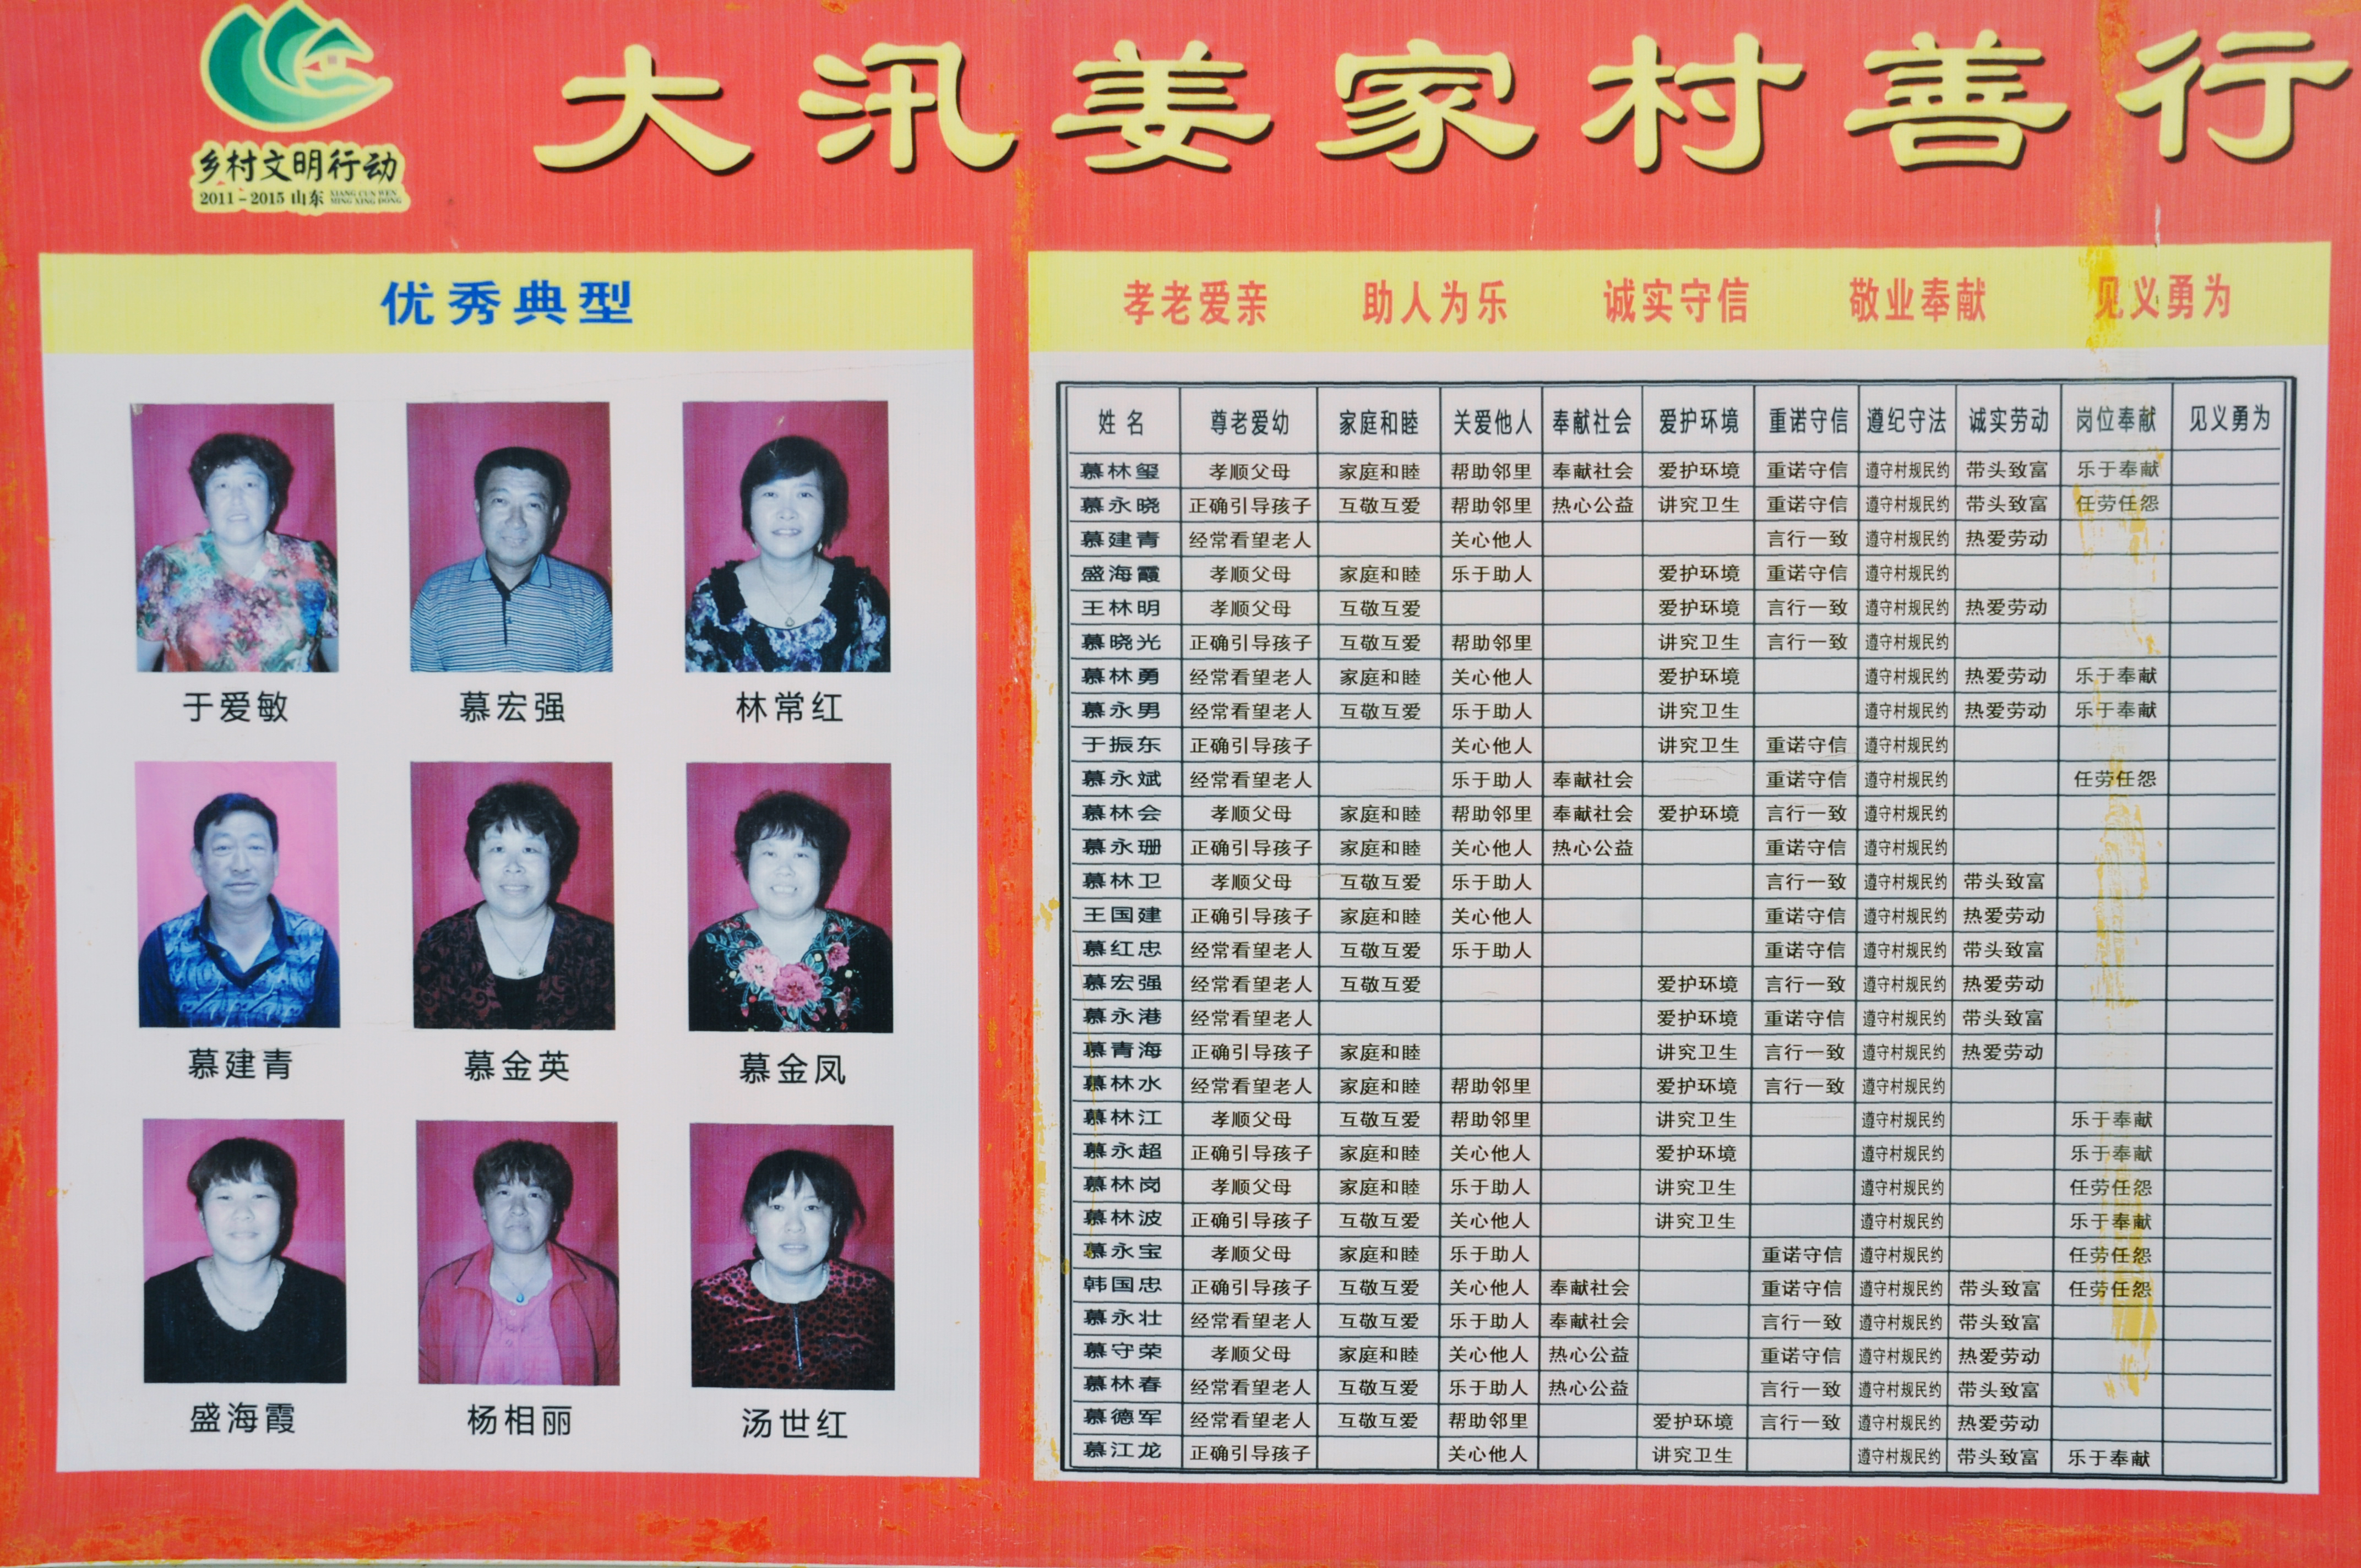 大汛姜家村善行
乡村文明行动
2011-2015 山东 XIANG CUN WEN MING XING DONG
优秀典型
于爱敏 慕宏强 林常红
慕建青 慕金英 慕金凤
盛海霞 杨相丽 汤世红
孝老爱亲 助人为乐 诚实守信 敬业奉献 见义勇为
姓名 尊老爱幼 家庭和睦 关爱他人 奉献社会 爱护环境 重诺守信 遵纪守法 诚实劳动 岗位奉献 见义勇为
慕林玺 孝顺父母 家庭和睦 帮助邻里 奉献社会 爱护环境 重诺守信 遵守村规民约 带头致富 乐于奉献
慕永晓 正确引导孩子 互敬互爱 帮助邻里 热心公益 讲究卫生 重诺守信 遵守村规民约 带头致富 任劳任怨
慕建青 经常看望老人 关心他人 言行一致 遵守村规民约 热爱劳动
盛海霞 孝顺父母 家庭和睦 乐于助人 爱护环境 重诺守信 遵守村规民约
王林明 孝顺父母 互敬互爱 爱护环境 言行一致 遵守村规民约 热爱劳动
慕晓光 正确引导孩子 互敬互爱 帮助邻里 讲究卫生 言行一致 遵守村规民约
慕林勇 经常看望老人 家庭和睦 关心他人 爱护环境 遵守村规民约 热爱劳动 乐于奉献
慕永男 经常看望老人 互敬互爱 乐于助人 讲究卫生 遵守村规民约 热爱劳动 乐于奉献
于振东 正确引导孩子 关心他人 讲究卫生 重诺守信 遵守村规民约
慕永斌 经常看望老人 乐于助人 奉献社会 重诺守信 遵守村规民约 任劳任怨
慕林会 孝顺父母 家庭和睦 帮助邻里 奉献社会 爱护环境 言行一致 遵守村规民约
慕永珊 正确引导孩子 家庭和睦 关心他人 热心公益 重诺守信 遵守村规民约
慕林卫 孝顺父母 互敬互爱 乐于助人 言行一致 遵守村规民约 带头致富
王国建 正确引导孩子 家庭和睦 关心他人 重诺守信 遵守村规民约 热爱劳动
慕红忠 经常看望老人 互敬互爱 乐于助人 重诺守信 遵守村规民约 带头致富
慕宏强 经常看望老人 互敬互爱 爱护环境 言行一致 遵守村规民约 热爱劳动
慕永港 经常看望老人 爱护环境 重诺守信 遵守村规民约 带头致富
慕青海 正确引导孩子 家庭和睦 讲究卫生 言行一致 遵守村规民约 热爱劳动
慕林水 经常看望老人 家庭和睦 帮助邻里 爱护环境 言行一致 遵守村规民约
慕林江 孝顺父母 互敬互爱 帮助邻里 讲究卫生 遵守村规民约 乐于奉献
慕永超 正确引导孩子 家庭和睦 关心他人 爱护环境 遵守村规民约 乐于奉献
慕林岗 孝顺父母 家庭和睦 乐于助人 讲究卫生 遵守村规民约 任劳任怨
慕林波 正确引导孩子 互敬互爱 关心他人 讲究卫生 遵守村规民约 乐于奉献
慕永宝 孝顺父母 家庭和睦 乐于助人 重诺守信 遵守村规民约 任劳任怨
韩国忠 正确引导孩子 互敬互爱 关心他人 奉献社会 重诺守信 遵守村规民约 带头致富 任劳任怨
慕永壮 经常看望老人 互敬互爱 乐于助人 奉献社会 言行一致 遵守村规民约 带头致富
慕守荣 孝顺父母 家庭和睦 关心他人 热心公益 重诺守信 遵守村规民约 热爱劳动
慕林春 经常看望老人 互敬互爱 乐于助人 热心公益 言行一致 遵守村规民约 带头致富
慕德军 经常看望老人 互敬互爱 帮助邻里 爱护环境 言行一致 遵守村规民约 热爱劳动
慕江龙 正确引导孩子 关心他人 讲究卫生 遵守村规民约 带头致富 乐于奉献